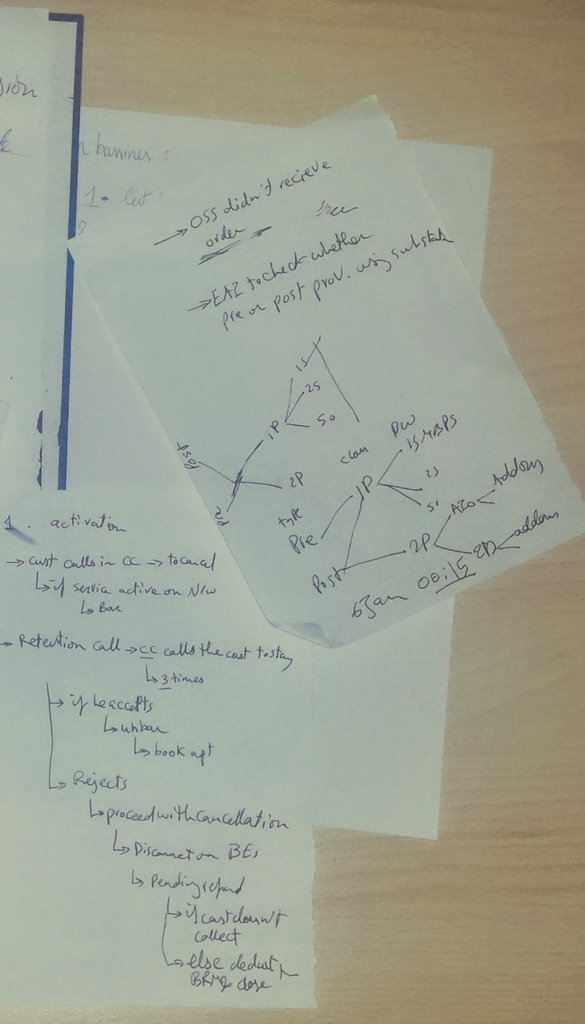 → OSS didn't recieve
order
→ EAI to check whether
pre or post prov. using substat
1P
1S
2S
50
2P
Post
type
clan
BW
Pre
1P
15 MBPS
2S
51
Post
2P
Addons
2P
addons
6 Jan 00:15
1. activation
→ cust calls in CC → to cancel
↳ if service active on N/w
↳ Bar
→ Retention call → CC calls the cust to stay
↳ 3 times
↳ if he accepts
↳ unbar
↳ book apt
↳ Rejects
↳ proceed with cancellation
↳ Disconnect on BEs
↳ pending refund
↳ if cust doesn't
collect
↳ else deduct
BRM & close
1.